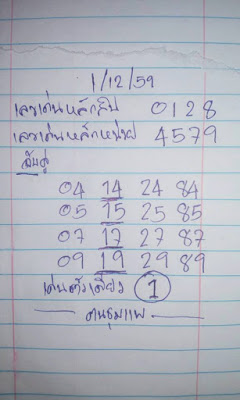 1/12/59
เลขเด่นหลักสิบ 0128
เลขเด่นหลักหน่วย 4579
จับคู่
04 14 24 84
05 15 25 85
07 17 27 87
09 19 29 89
เด่นตัวเดียว 1
คนชุมแพ